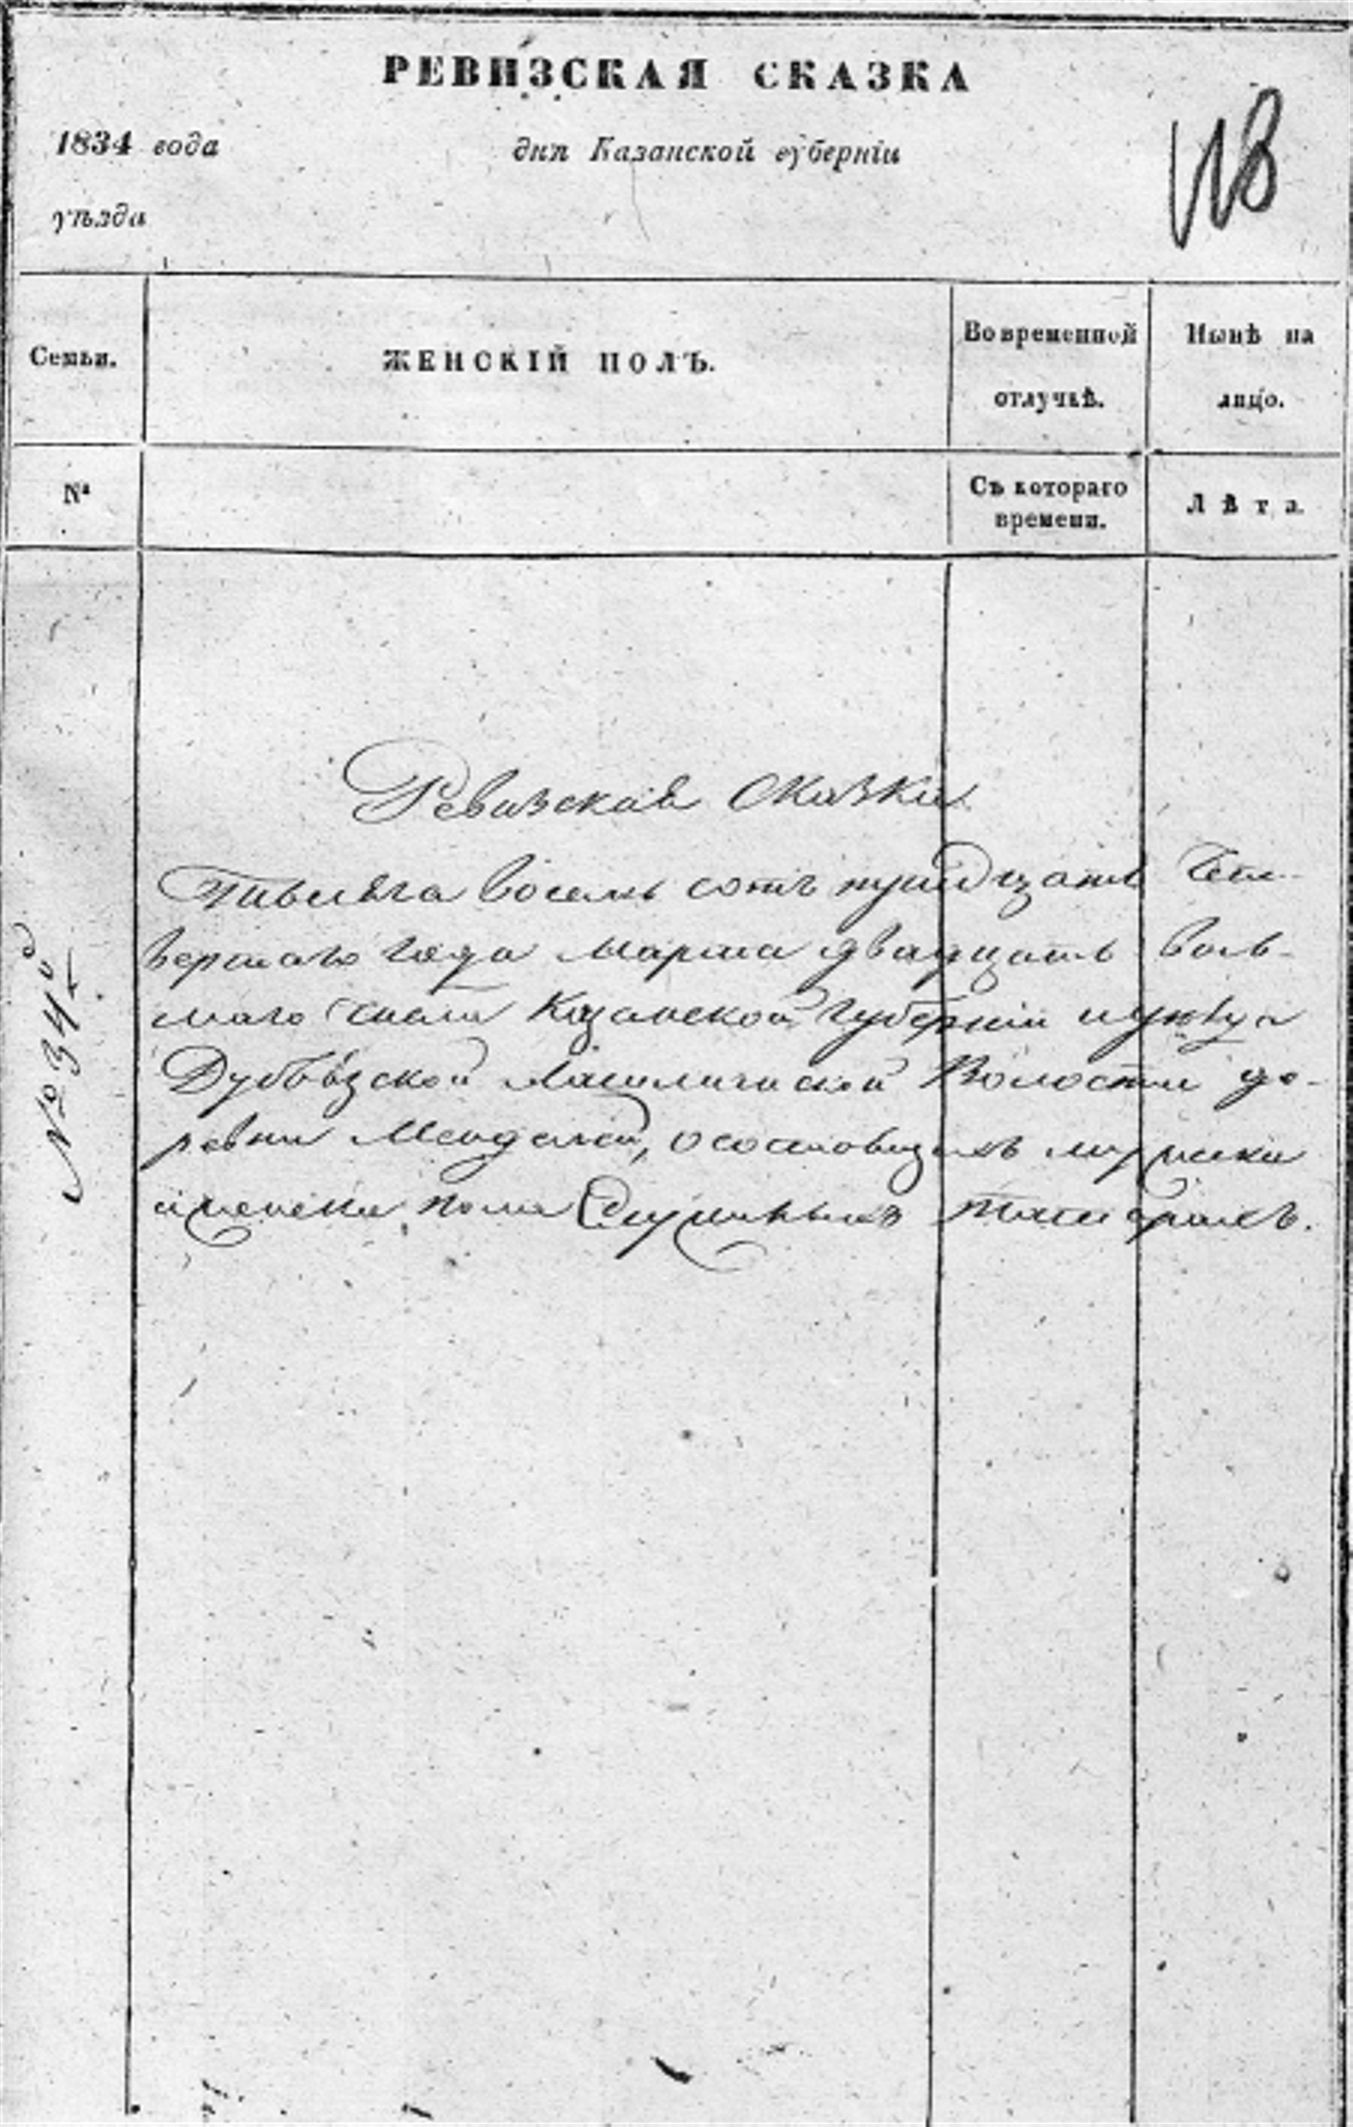 РЕВИЗСКАЯ СКАЗКА
118
1834 года дня Казанской губерніи
уѣзда
Семьи. ЖЕНСКІЙ ПОЛЪ. Во временной отлучкѣ. Нынѣ на лицо.
№ Съ котораго времени. Лѣта.
Ревизская Сказка
Тысяча восемь сотъ тридцать Чет-
вертаго года марта двадцать вось-
маго числа Казанской Губерніи и уѣзда
волости де-
ревни о состоящихъ мужеска
и женска пола Служилыхъ татарахъ.
№ 34й